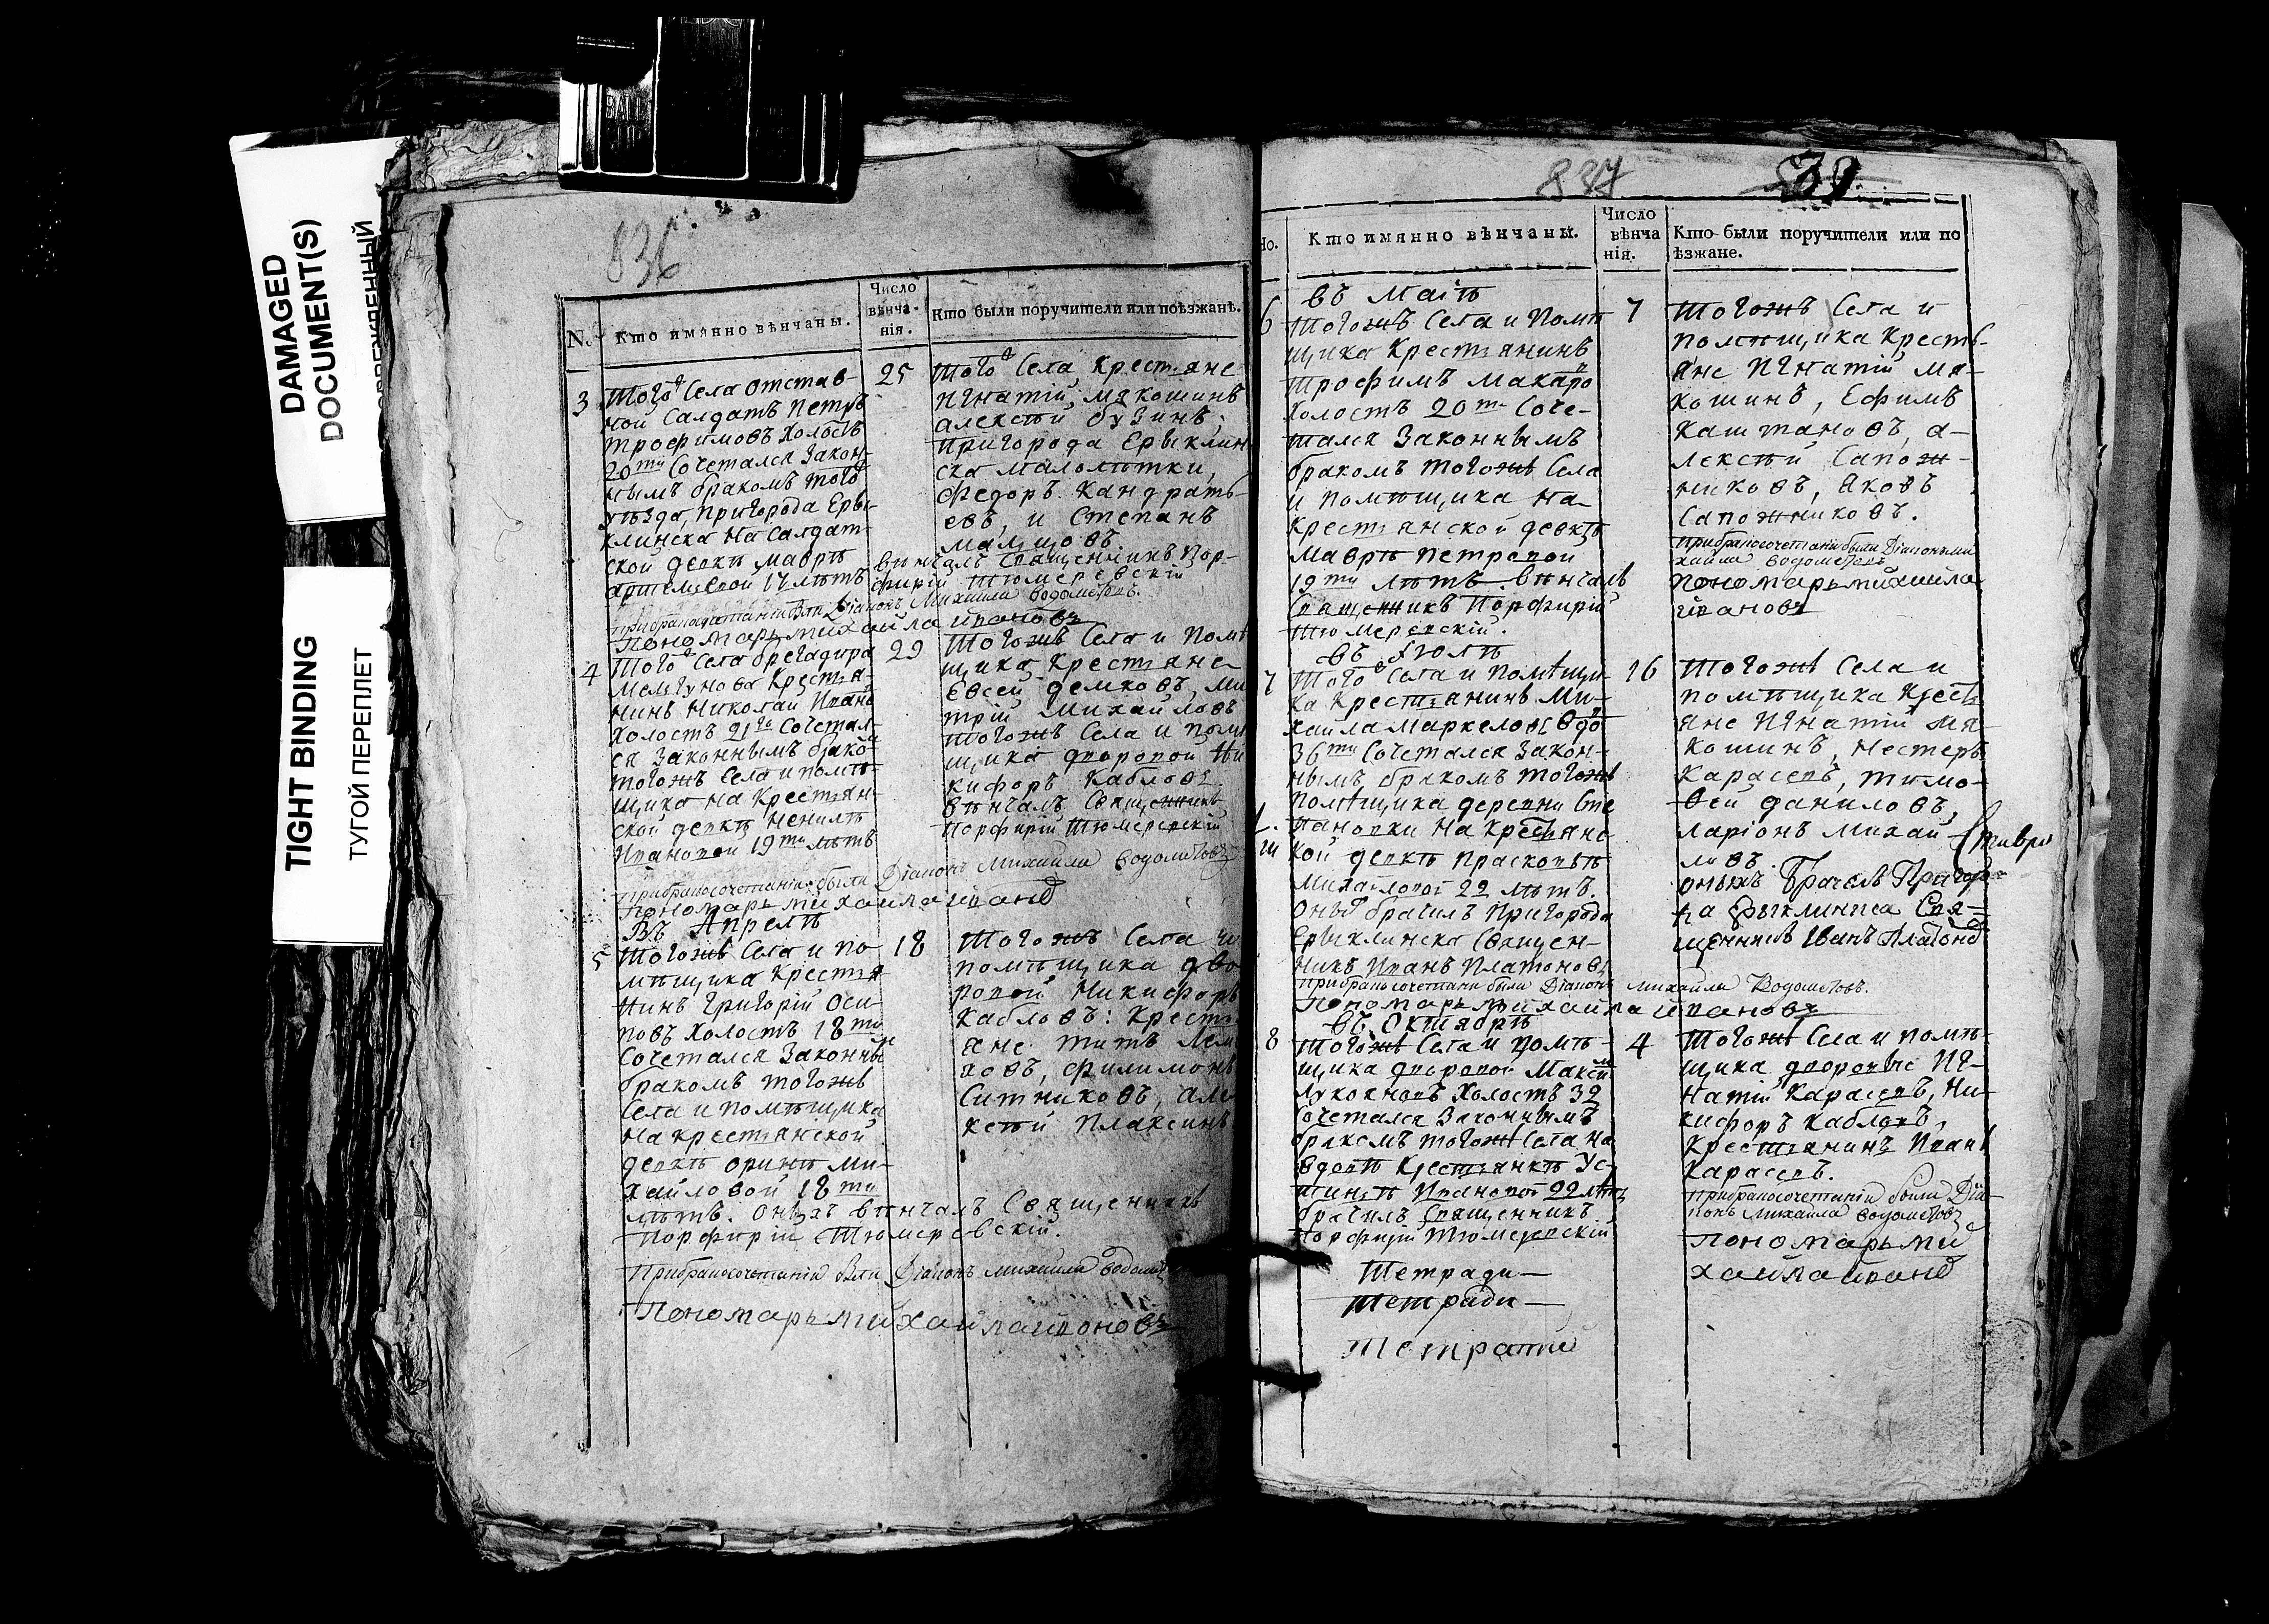 DAMAGED
DOCUMENT(S)
TIGHT BINDING
ТУГОЙ ПЕРЕПЛЕТ
836
N.
Кто имянно вѣнчаны.
Число
вѣнча-
нія.
Кто были поручители или поѣзжанѣ.
3
Того Села отстав-
ной Салдатъ Петръ
трофимовъ холостъ
20ти Сочетался Закон-
нымъ бракомъ того
уѣзда, пригорода Еры-
клинска на Салдат-
ской девкѣ маврѣ
артемьевой 17 лѣтъ
25
того Села Крестьяне
Игнатій мякошинъ
алексѣй бузинъ,
пригорода Ерыклин
ска малолѣтки,
Федоръ Кандрать-
евъ, и Степанъ
мальцовъ
вѣнчалъ Священникъ Пор-
фирій тюмеревскій
При бракосочетаніи были Діаконъ Михайла Водолетовъ.
Пономарь михайла ивановъ
4
Того Села брегадира
Мельгунова Крестья-
нинъ Николай Ивано
холостъ 21го Сочетал-
ся Законнымъ брако
тогожъ Села и помѣ-
щика на Крестьян-
ской девкѣ Ненилѣ
Ивановой 19ти лѣтъ
29
тогожъ Села и помѣ
щика Крестьяне
Евсей демковъ, ми
трій михайловъ
тогожъ Села и помѣ
щика дворовой Ни
кифоръ Кабловъ
вѣнчалъ Священникъ
Порфирій Тюмеревскій
При бракосочетаніи были Діаконъ Михайла Водолетовъ
Пономарь михайла ивано
Въ Апрелѣ
5
Тогожъ Села и по-
мѣщика Крестья
нинъ Григорій Оси-
повъ холостъ 18ти
Сочетался Законны
бракомъ тогожъ
Села и помѣщика
на крестьянской
девкѣ оринѣ ми-
хайловой 18ти
лѣтъ. Оныхъ вѣнчалъ Священникъ
Порфирій Тюмеревскій.
18
Тогожъ Села и
помѣщика дво
ровой Никифоръ
Кабловъ: Кресть
яне титъ
ковъ, филимонъ
Ситниковъ, але
ксѣй Плаксинъ
При бракосочетаніи были Діаконъ михайла водолет
Пономарь михайла ивановъ
837
но.
Кто имянно вѣнчаны.
Число
вѣнча
нія.
Кто были поручители или по
ѣзжане.
въ Маіѣ
6
тогожъ Села и помѣ
щика Крестьянинъ
трофимъ Макаро
холостъ 20ти Соче-
тался Законнымъ
бракомъ тогожъ Села
и помѣщика на
Крестьянской девкѣ
Маврѣ петровой
19ти лѣтъ. вѣнчалъ
Священникъ Порфирій
тюмеревскій.
7
тогожъ Села и
помѣщика Кресть-
яне Игнатій мя-
кошинъ, Ефимъ
каштановъ, а-
лексѣй Сапож-
никовъ, яковъ
Сапожниковъ.
При бракосочетаніи были Діаконъ ми
хайла водолетовъ
пономарь михайла
ивановъ
въ Іюлѣ
7
Того Села и помѣщи-
ка Крестьянинъ Ми-
хайла маркеловъ вдо
36ти Сочетался Закон-
нымъ бракомъ тогожъ
помѣщика деревни Сте
пановки на Крестьянс
кой девкѣ прасковьѣ
михайловой 22 лѣтъ.
Оны брачилъ пригорода
Ерыклинска Священ-
никъ Иванъ Платоновъ
16
тогожъ Села и
помѣщика Крест
яне Игнатій мя-
кошинъ, Нестеръ
Карасевъ, тимо-
ѳей даниловъ,
ларіонъ михай-
ловъ.
оныхъ брачилъ Пригоро-
да Ерыклинска Свя-
щенникъ Іванъ Платоно
При бракосочетани были Діаконъ михайла Водолетовъ.
Пономарь михайла ивановъ
въ Октябрѣ
8
тогожъ Села и помѣ-
щика дворовой Макси
лукояновъ холостъ 32
Сочетался Законнымъ
бракомъ тогожъ Села на
вдовѣ Крестьянкѣ Ус-
тиньѣ Ивановой 22 лѣтъ
брачилъ Священникъ
Порфирій тюмеревскій
4
тогожъ Села и помѣ-
щика дворовые Иг-
натій Карасевъ, Ни-
кифоръ Кабловъ,
Крестьянинъ Иванъ
Карасевъ.
При бракосочетаніи были Діа-
конъ михайла водолетовъ
Пономарь ми
хайла ивано
Тетради—
тетради—
Тетрати